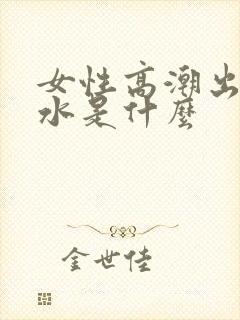 女性高潮出
水是什麼
金世佳